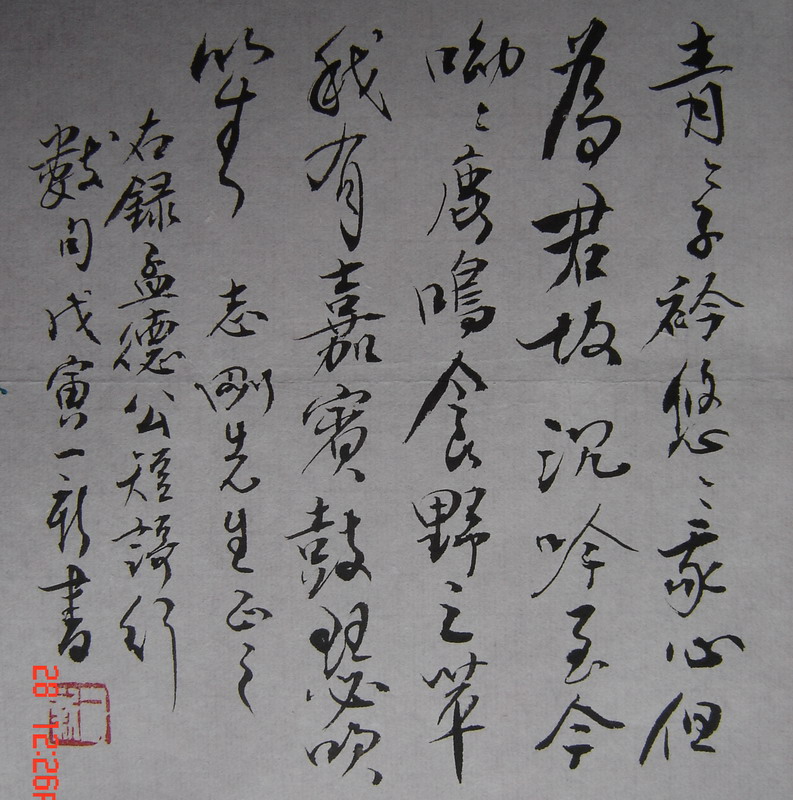 青〻子衿悠〻我心但
為君故沉吟至今
呦〻鹿鳴食野之苹
我有嘉賓鼓瑟吹
笙 志剛先生正之
右錄孟德公短謌行
數句戊寅一新書
28 12:26